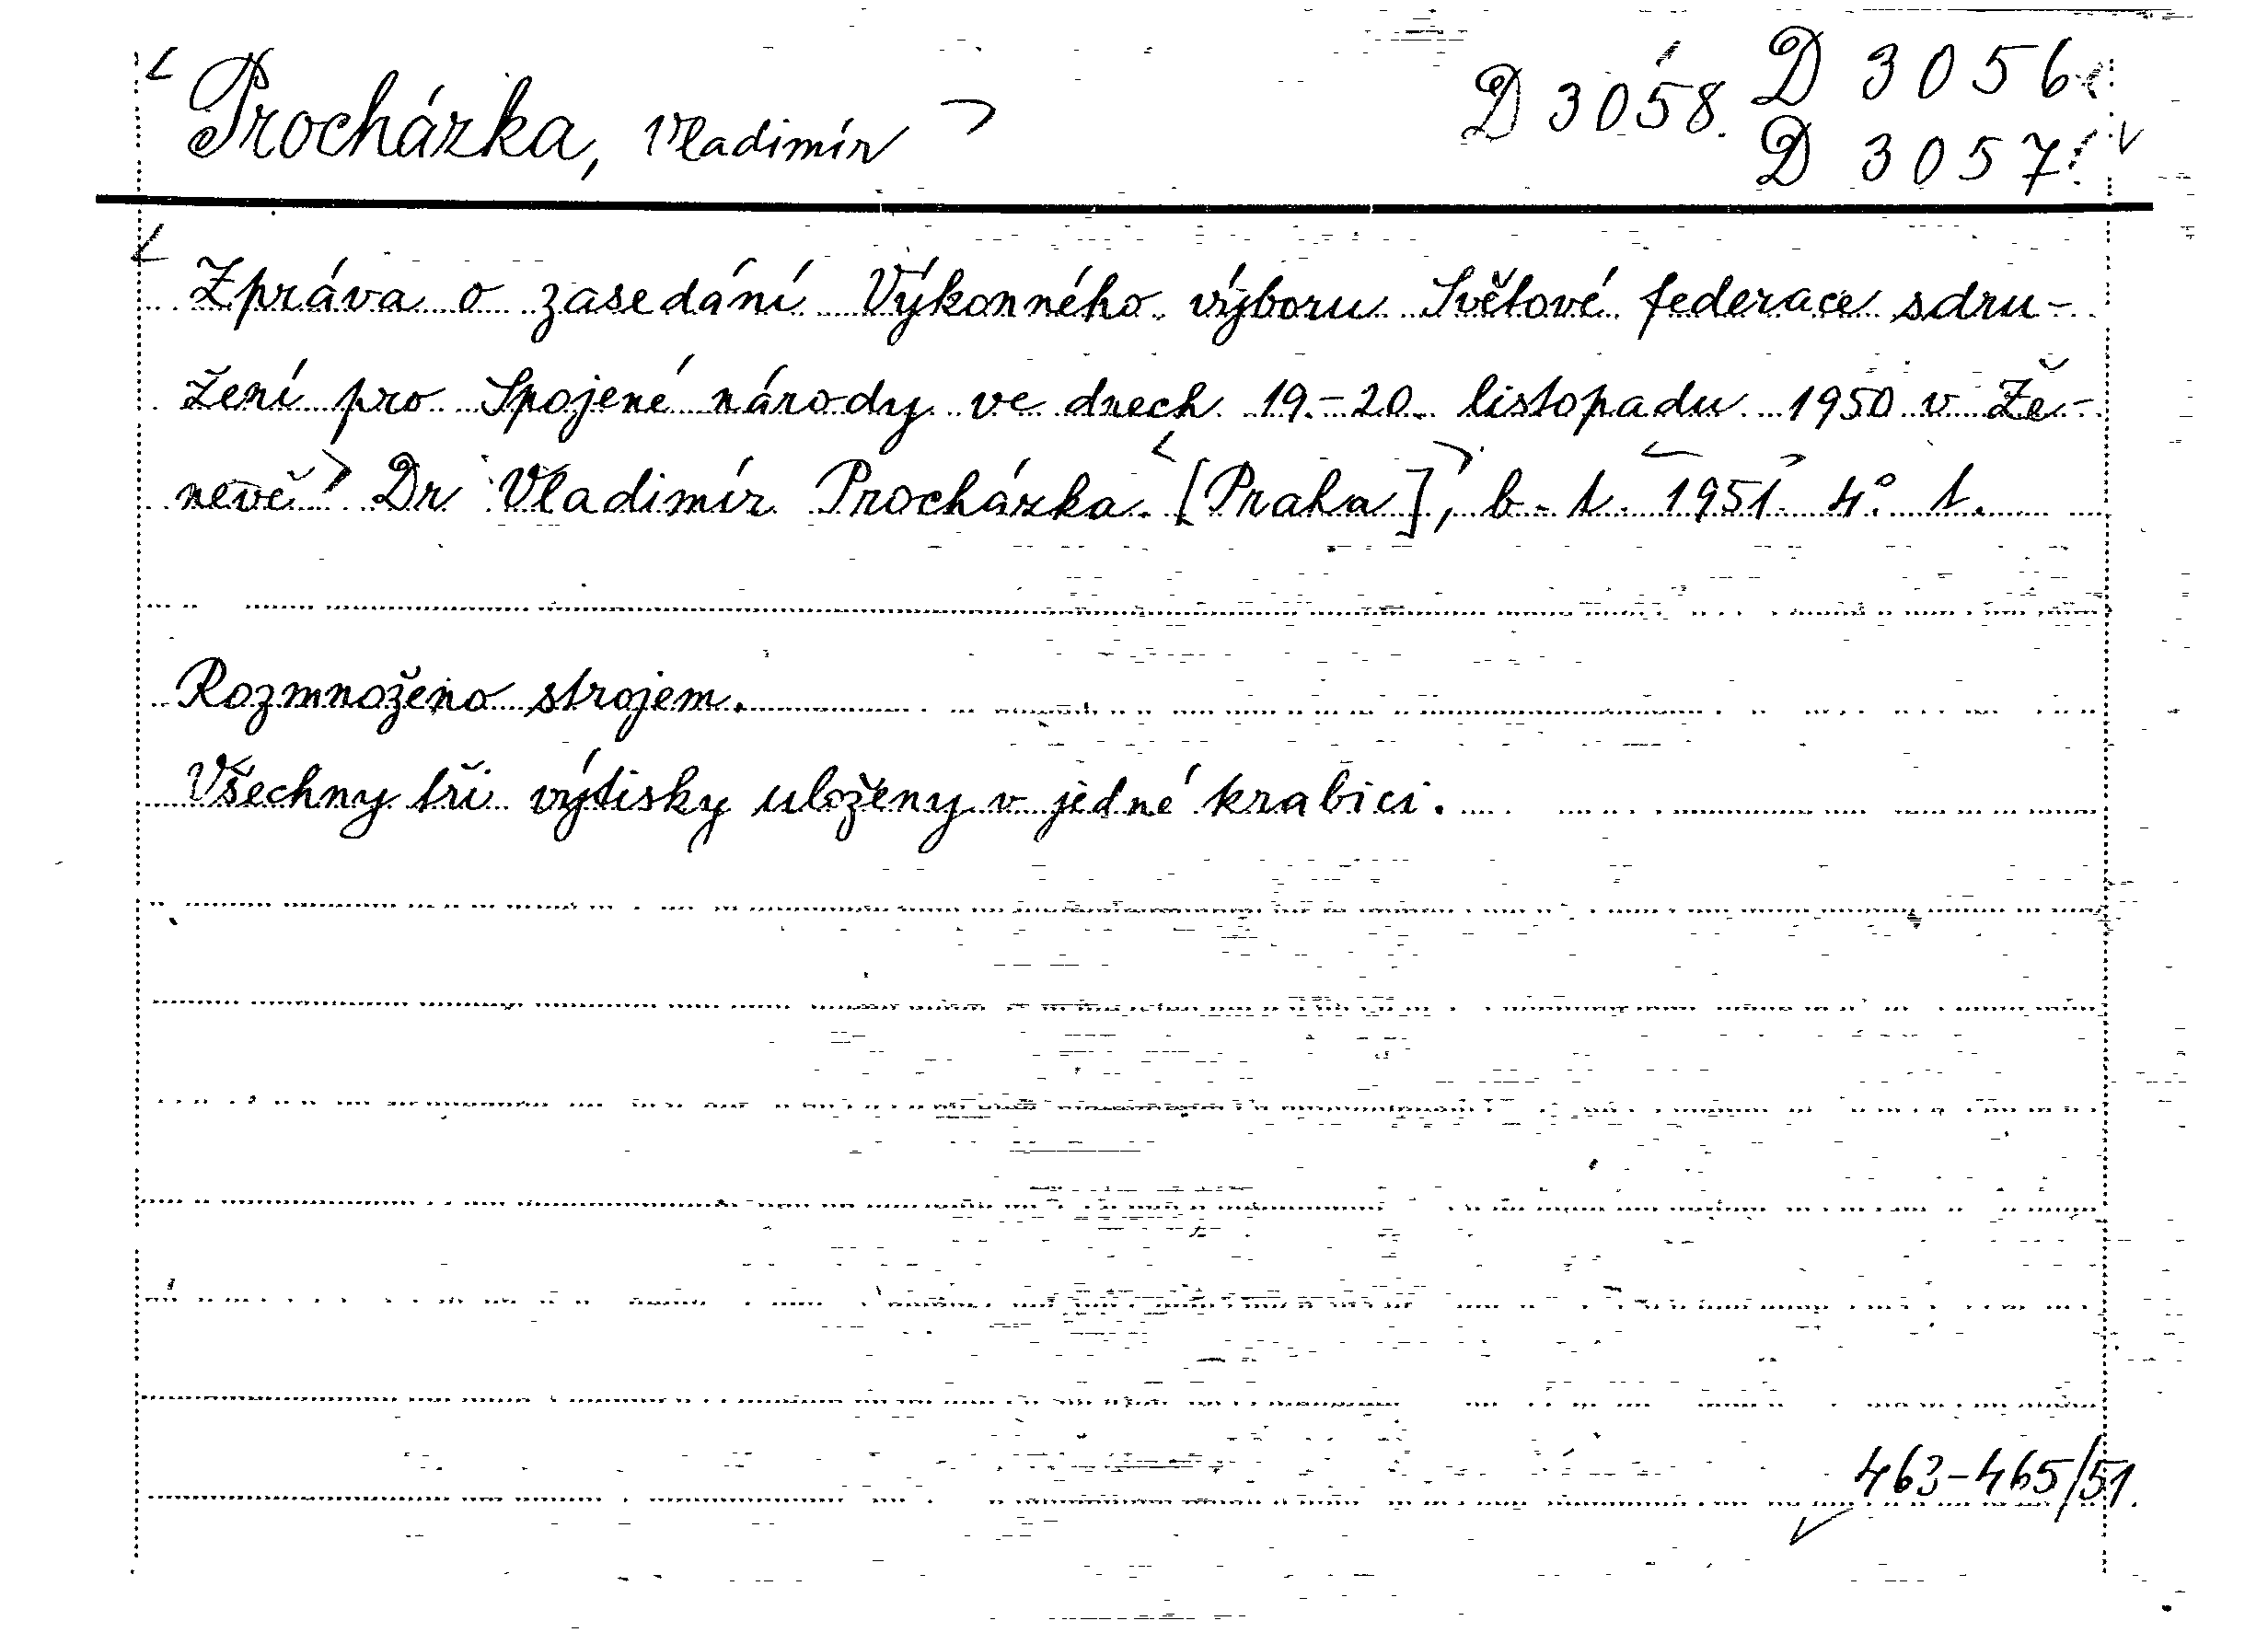 Procházka, Vladimír
D 3058.
D 3056
D 3057
Zpráva o zasedání Výkonného výboru Světové federace sdru-
žení pro Spojené národy ve dnech 19.-20. listopadu 1950 v Že-
nevě. Dr Vladimír Procházka. [Praha], b. t. 1951. 4° 1.
Rozmnoženo strojem.
Všechny tři výtisky uloženy v jedné krabici.
463-465/51.